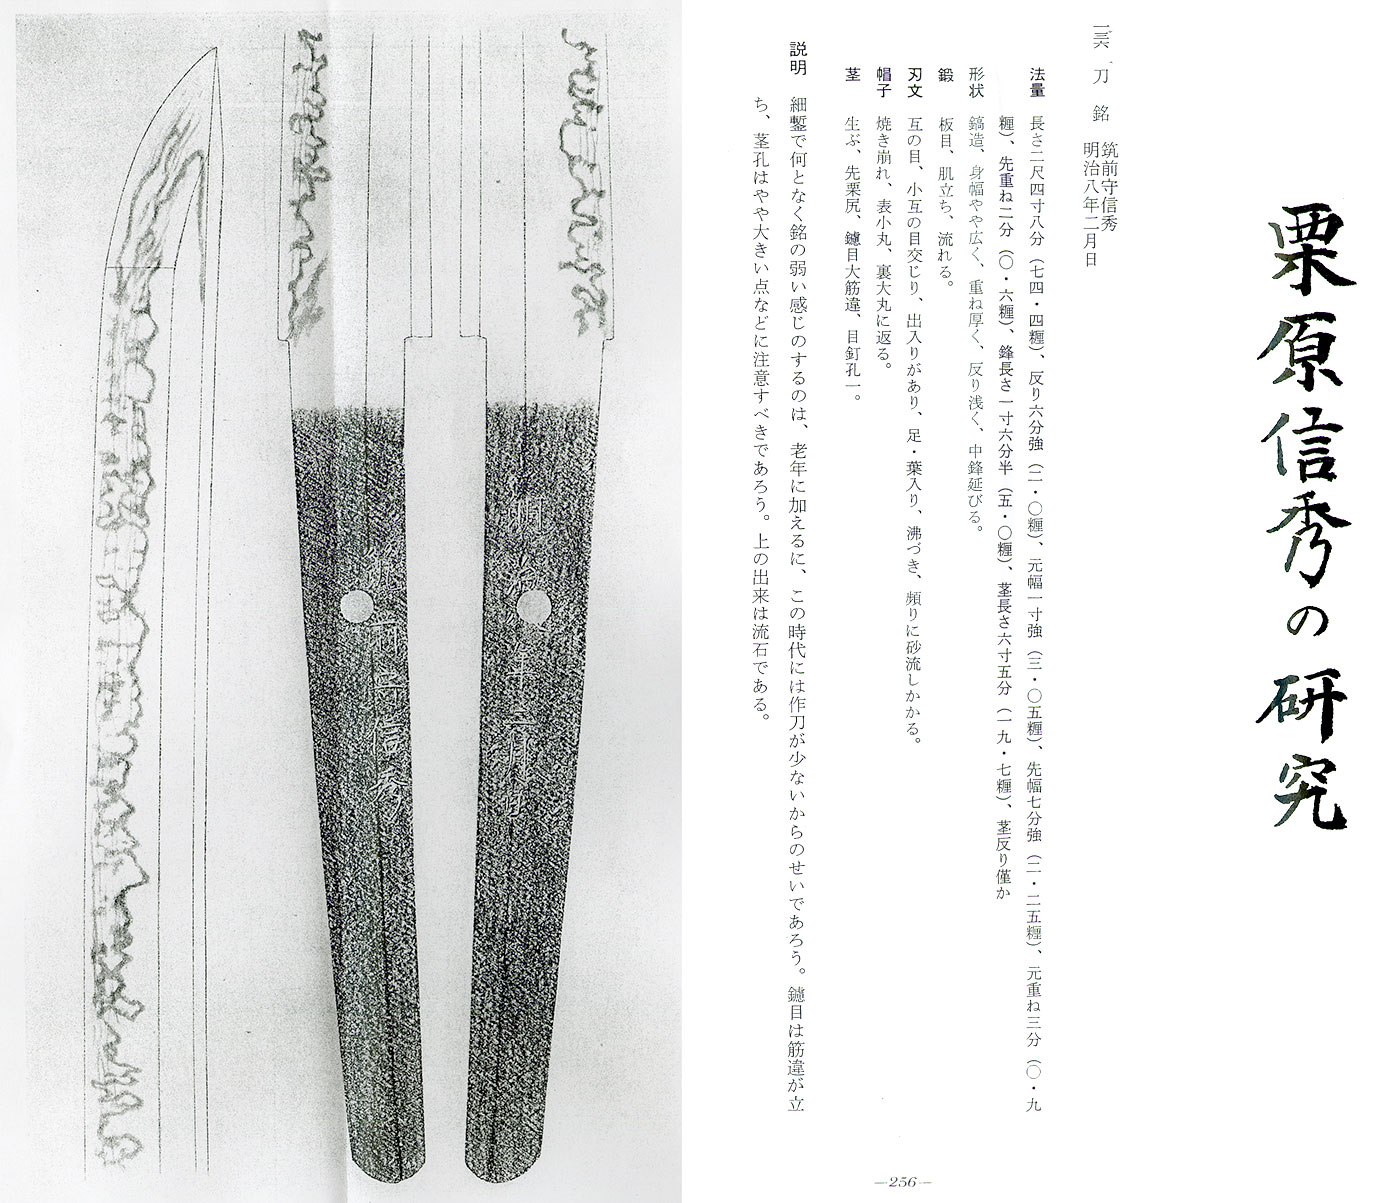 栗原信秀の研究
一三六、刀 銘 筑前守信秀
明治八年二月日
法量 長さ二尺四寸八分（七四・四糎）、反り六分強（二・〇糎）、元幅一寸強（三・〇五糎）、先幅七分強（二・二五糎）、元重ね三分（〇・九
糎）、先重ね二分（〇・六糎）、鋒長さ一寸六分半（五・〇糎）、茎長さ六寸五分（一九・七糎）、茎反り僅か
形状 鎬造、身幅やや広く、重ね厚く、反り浅く、中鋒延びる。
鍛 板目、肌立ち、流れる。
刃文 互の目、小互の目交じり、出入りがあり、足・葉入り、沸づき、頻りに砂流しかかる。
帽子 焼き崩れ、表小丸、裏大丸に返る。
茎 生ぶ、先栗尻、鑢目大筋違、目釘孔一。
説明 細鏨で何となく銘の弱い感じのするのは、老年に加えるに、この時代には作刀が少ないからのせいであろう。鑢目は筋違が立
ち、茎孔はやや大きい点などに注意すべきであろう。上の出来は流石である。
—256—
筑前守信秀